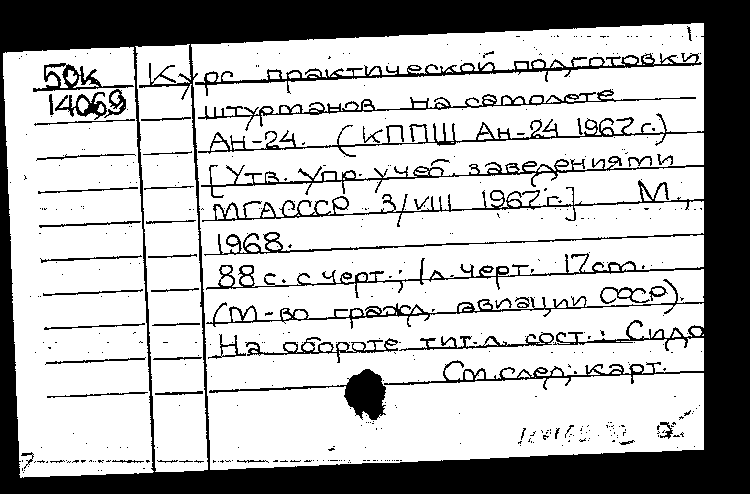 1
50к Курс практической подготовки
14069 штурманов на самолете
Ан-24. (КППШ Ан-24 1967г.)
[Утв. Упр. учеб. заведениями
МГАСССР 3/VIII 1967г.]. М.,
1968.
88 с. с черт.; 1 л. черт. 17 см.
(М-во гражд. авиации СССР).
На обороте тит. л. сост.: Сидо
См. след. карт.